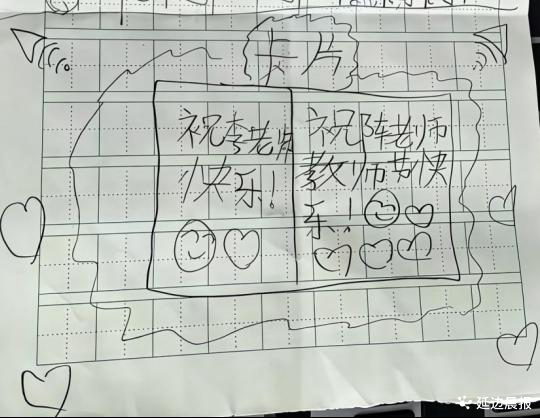 卡片
祝李老师
快乐！
祝陈老师
教师节快
乐！
延边晨报